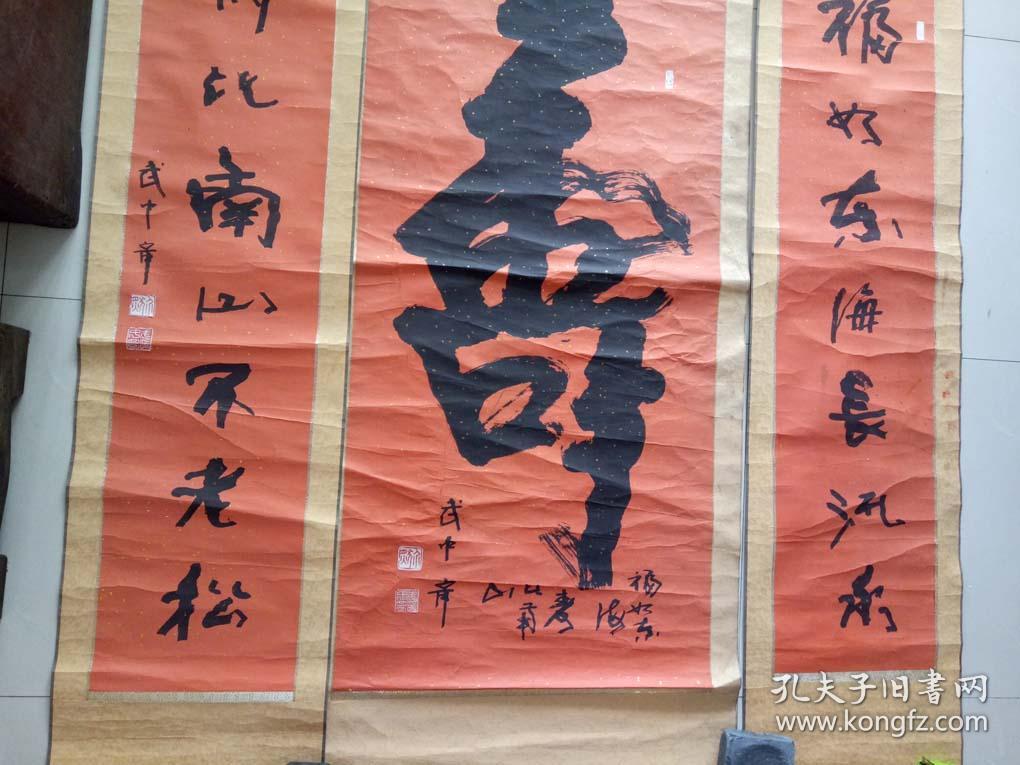 福如东海長流水
壽
福如东
海
寿
比南
山
武中奇
比南山不老松
武中奇
孔夫子旧書网
www.kongfz.com